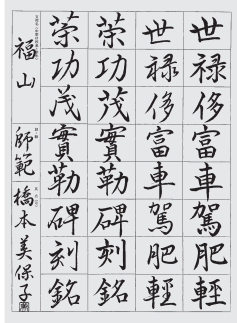 世禄侈富車駕肥輕
世禄侈富車駕肥輕
榮功茂實勒碑刻銘
榮功茂實勒碑刻銘
福山
師範 橋本美保子